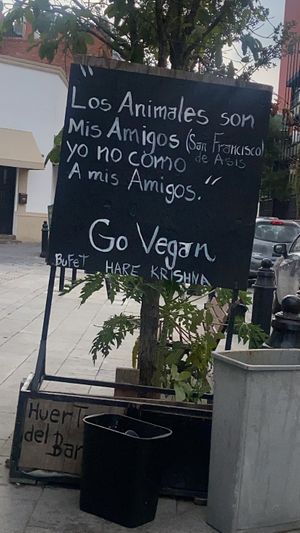 "
Los Animales son
Mis Amigos (San Francisco)
de Asis
yo no como
A mis Amigos."
Go Vegan
Bufet Hare Krishna
Huert
del Bar